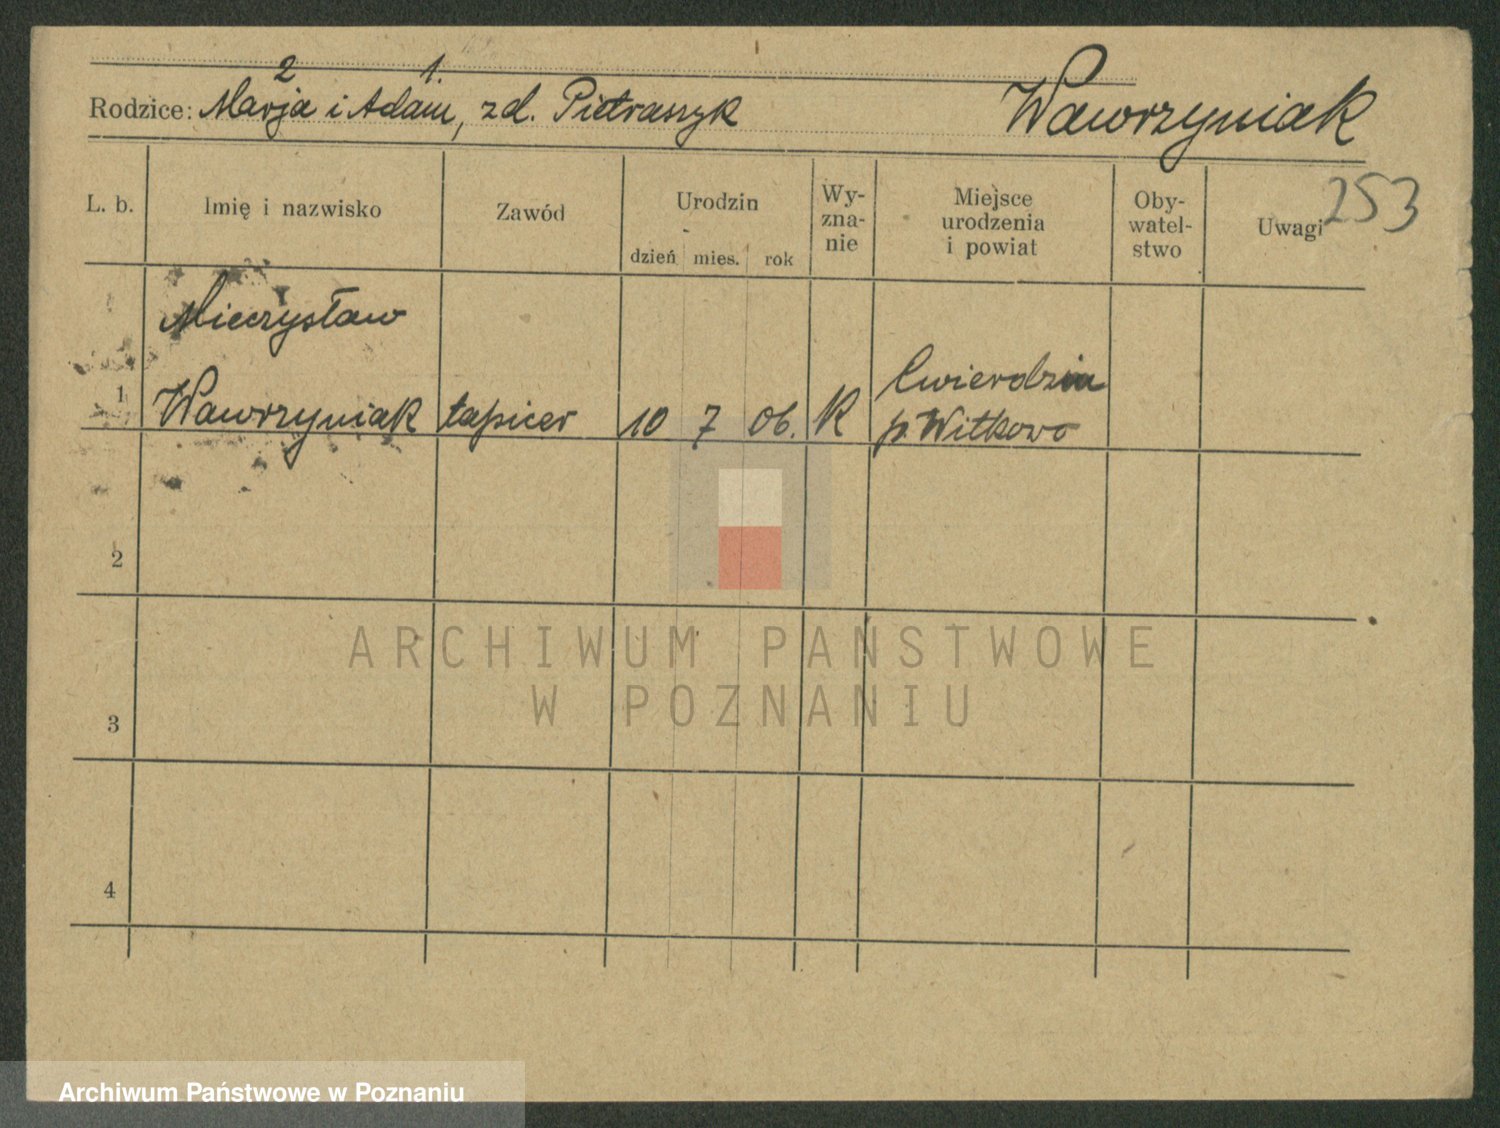 2 1.
Rodzice: Marja i Adam, zd. Pietraszyk Wawrzyniak
253
L. b. Imię i nazwisko Zawód Urodzin dzień mies. rok Wy-zna-nie Miejsce urodzenia i powiat Oby-watel-stwo Uwagi
Mieczysław
1 Wawrzyniak tapicer 10 7 06. K Cwierdzin
p. Witkowo
2
3
4
ARCHIWUM PAŃSTWOWE
W POZNANIU
Archiwum Państwowe w Poznaniu